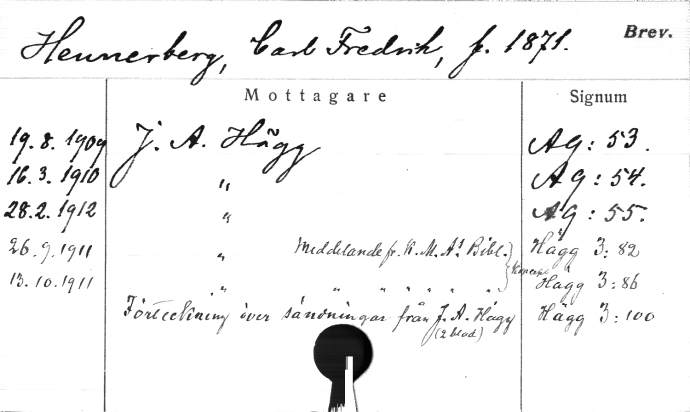 Hennerberg, Carl Fredrik, f. 1871. Brev.
Mottagare Signum
19.8.1909 J. A. Hägg AG: 53.
16.3.1910 " AG: 54.
28.2.1912 " AG: 55.
26.9.1911 " Meddelande fr. K. M. A:s Bibl. Hägg 3: 82
13.10.1911 " " " " " " " Hägg 3: 86
Förteckning över sändningar från J. A. Hägg Hägg 3: 100
(2 blad)